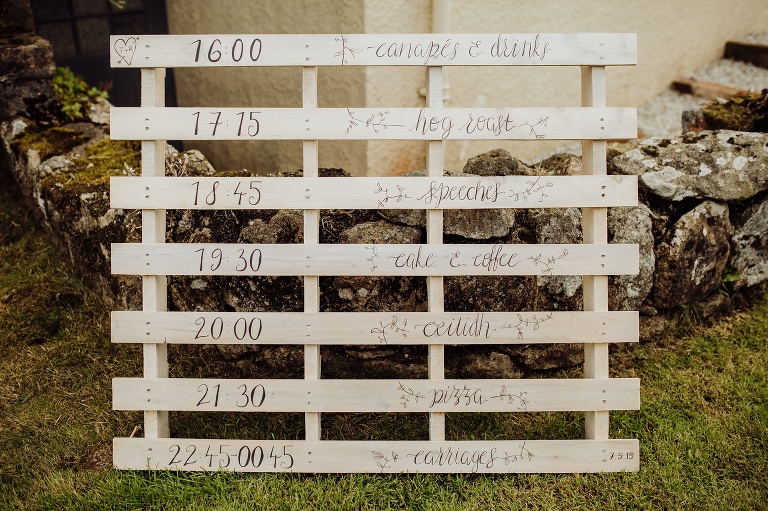 16:00 canapés & drinks
17:15 hog roast
18:45 speeches
19:30 cake & coffee
20:00 ceilidh
21:30 pizza
22:45-00:45 carriages 7·9·19